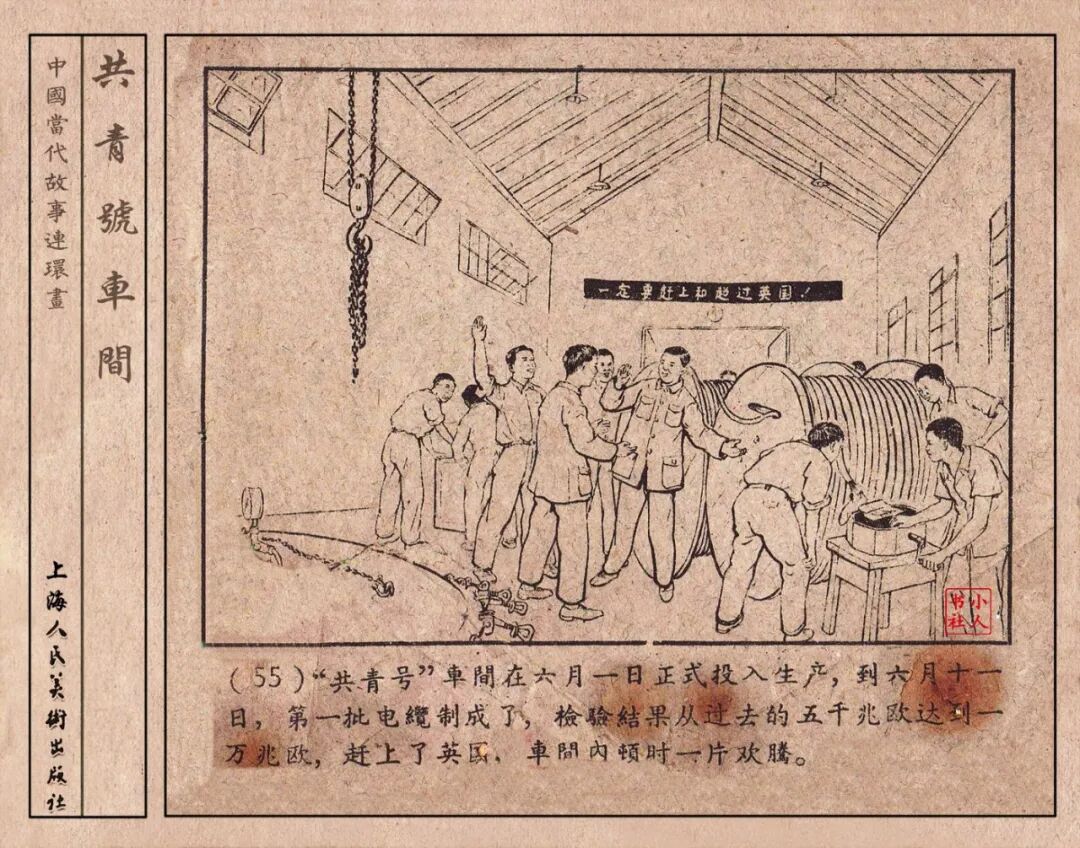 共青號車間
中國當代故事連環畫
上海人民美術出版社
一定要赶上和超过英国！
小人书社
(55)“共青号”車間在六月一日正式投入生产，到六月十一
日，第一批电纜制成了，檢驗結果从过去的五千兆欧达到一
万兆欧，赶上了英国．車間內頓时一片欢騰。